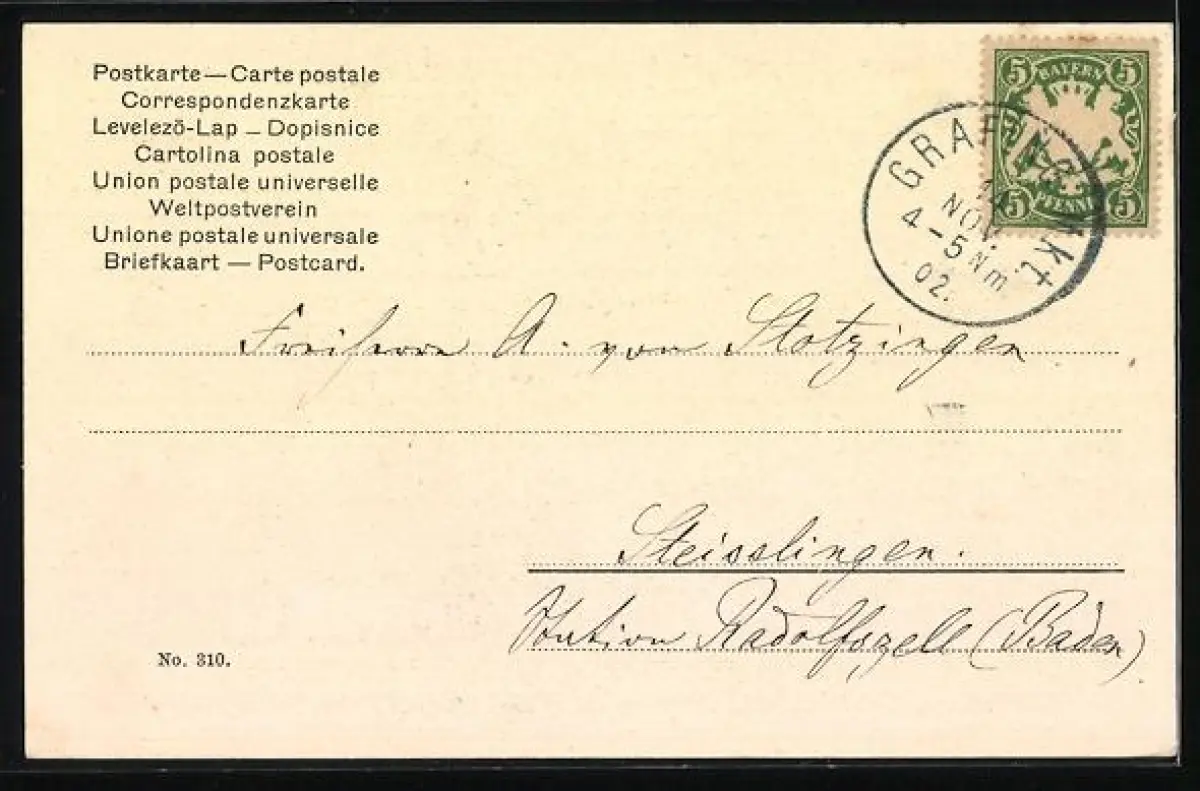 Postkarte — Carte postale
Correspondenzkarte
Levelező-Lap – Dopisnice
Cartolina postale
Union postale universelle
Weltpostverein
Unione postale universale
Briefkaart — Postcard.
5 BAYERN 5
5 PFENNIG 5
GRAFING Mkt.
14
NOV.
4-5 Nm.
02.
Freiherrn A. von Stotzingen
Steisslingen.
Station Radolfszell (Baden)
No. 310.